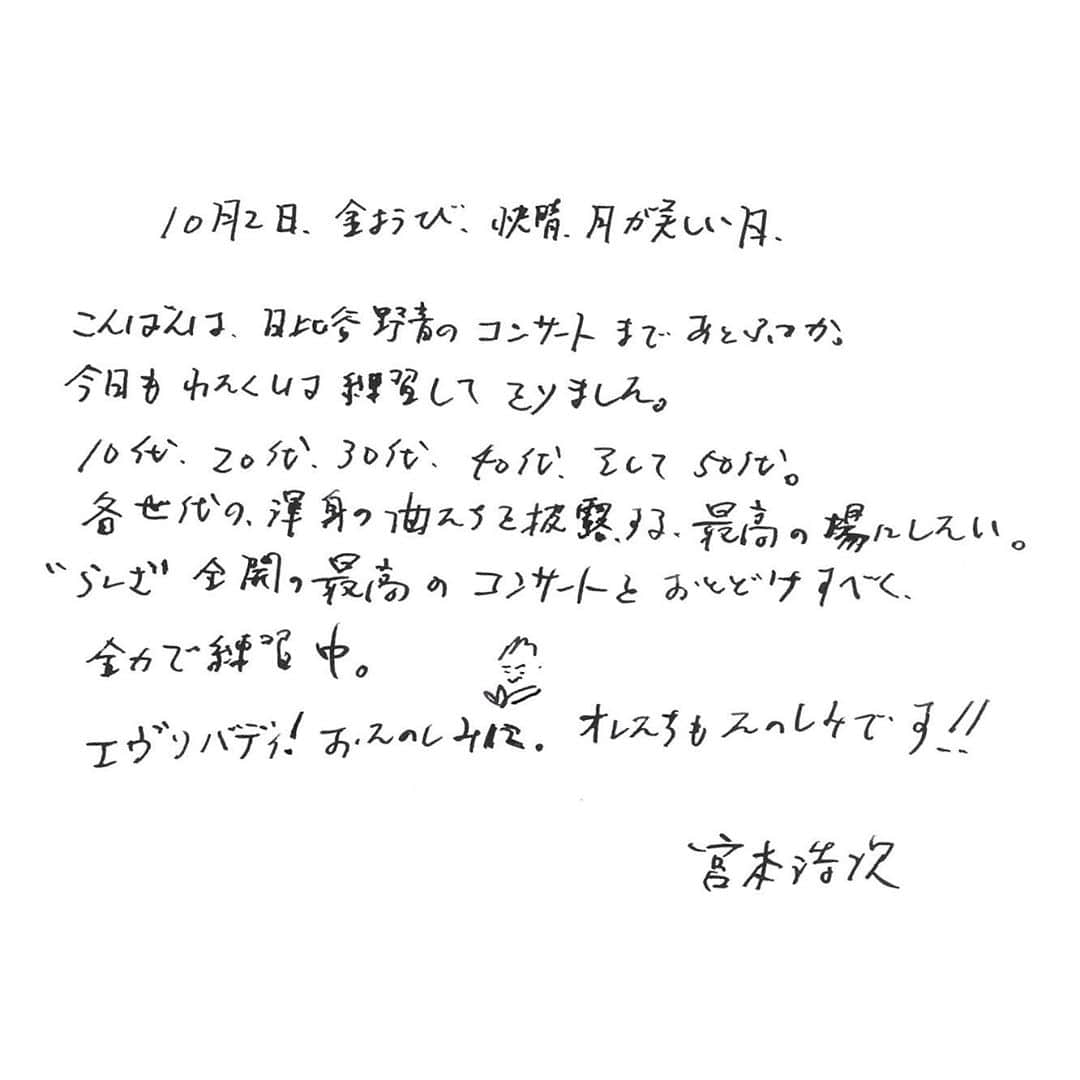 10月2日、金ようび、快晴、月が美しい月、
こんばんは、日比谷野音のコンサートまであとふつか。
今日もわたくしは練習しておりました。
10代、20代、30代、40代、そして50代。
各世代の、渾身の曲たちを披露する、最高の場にしたい。
全開の最高のコンサートをおとどけすべく、
全力で練習中。
エヴリバディ!おたのしみに。オレたちもたのしみです!!
宮本浩次